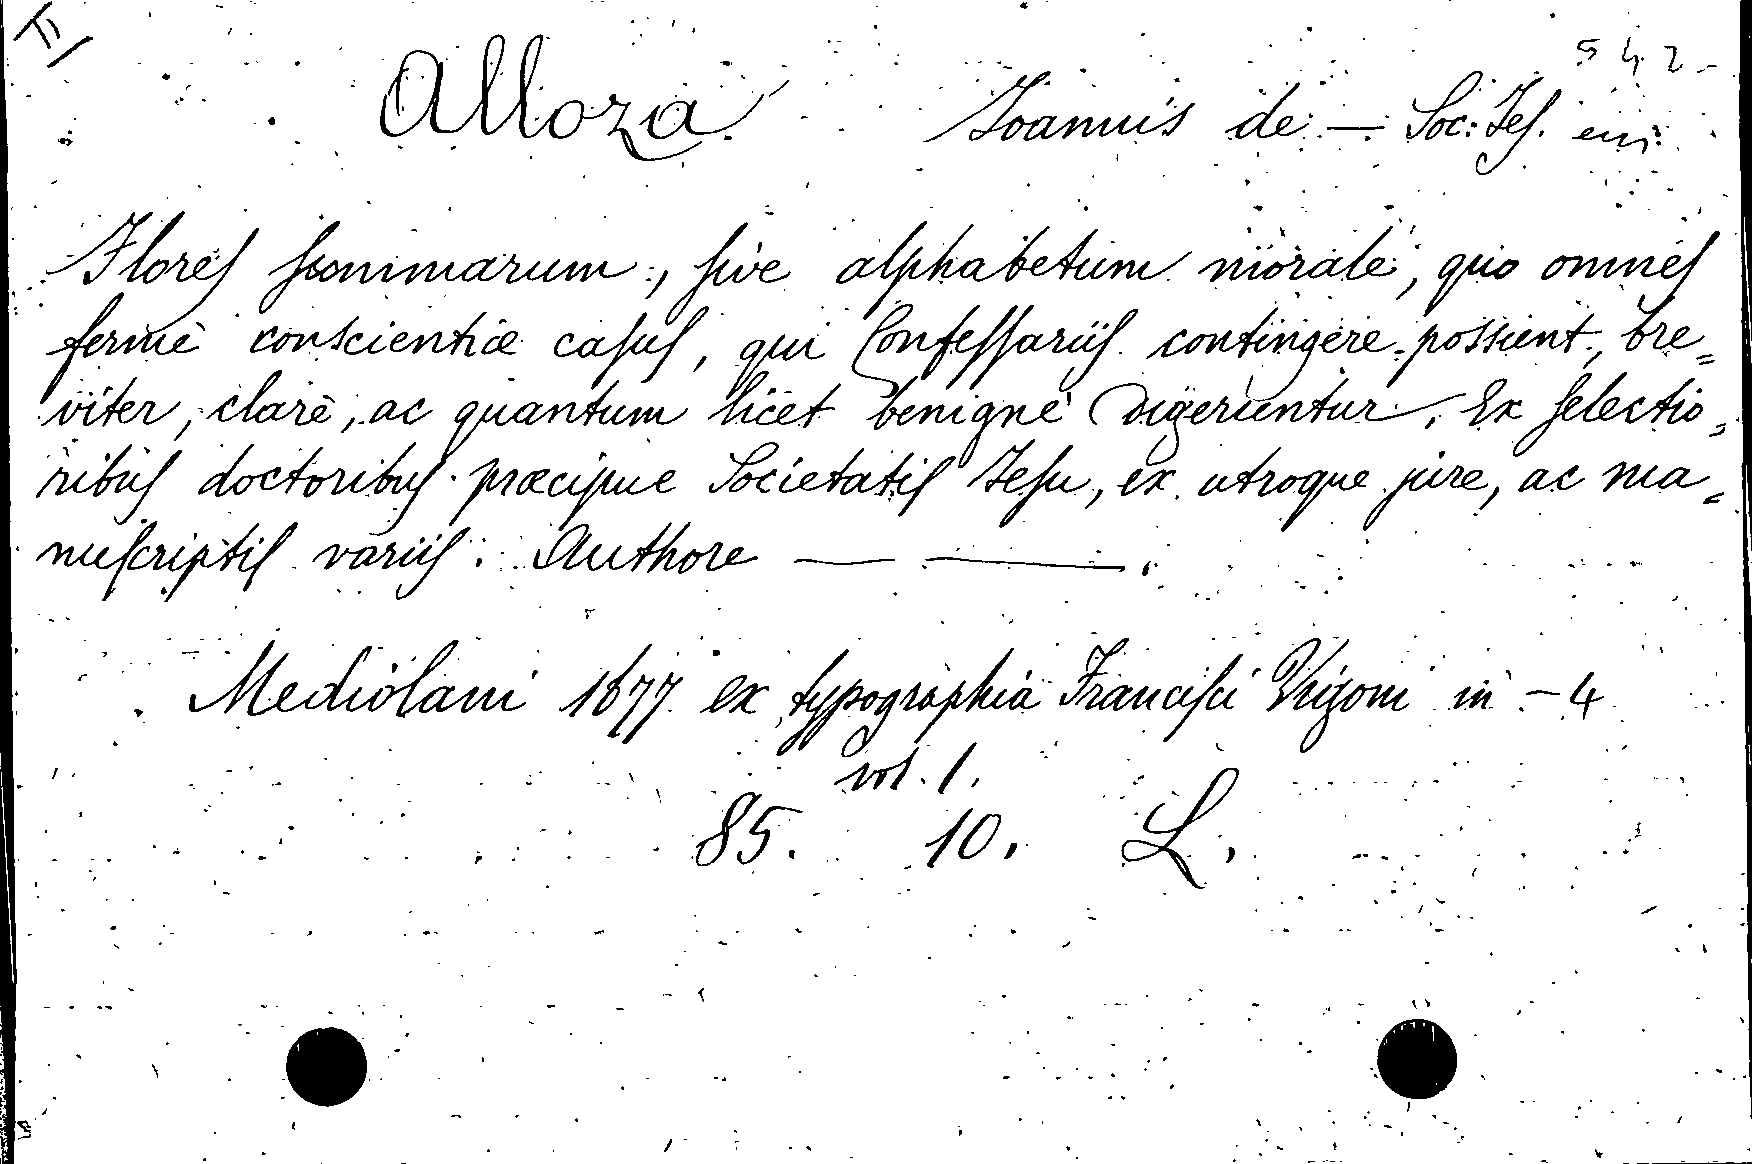 II/
542
Alloza Joannis de — Soc: Jes.
Flores summarum, sive alphabetum morale, quo omnes
fermè conscientiæ casus, qui Confessariis contingere possunt, bre=
viter, clarè, ac quantum licet benignè digeruntur. Ex selectio=
ribus doctoribus præcipue Societatis Jesu, ex utroque jure, ac ma=
nuscriptis variis. Authore — —.
Mediolani 1677 ex typographia Francisci Vigoni in - 4
vol. 1.
85. 10. L.